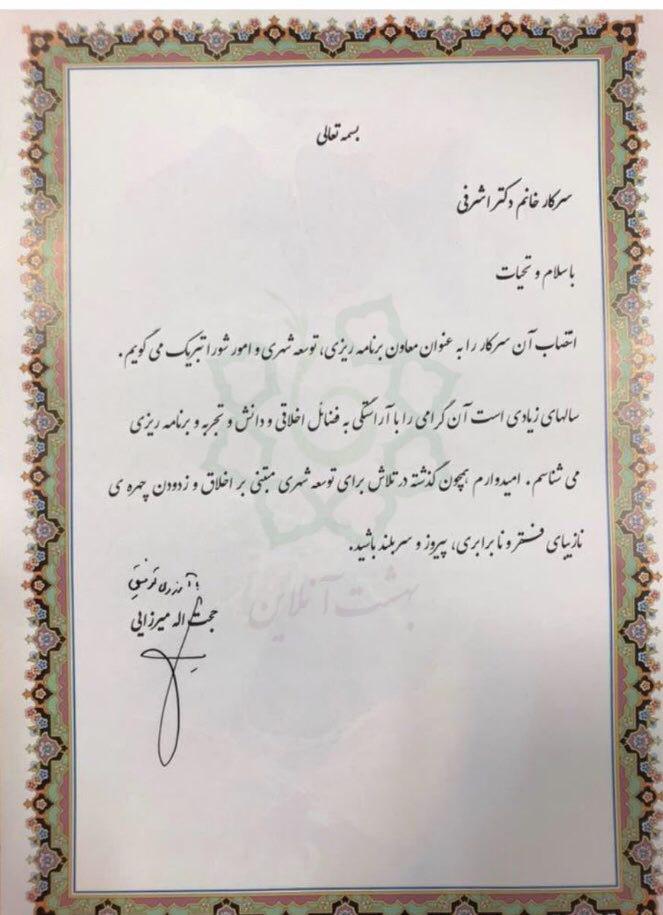 بسمه تعالی
سرکار خانم دکتر اشرفی
با سلام و تحیات
انتصاب آن سرکار را به عنوان معاون برنامه ریزی، توسعه شهری و امور شورا تبریک می گویم.
سالهای زیادی است آن گرامی را با آراستگی به فضائل اخلاقی و دانش و تجربه و برنامه ریزی
می شناسم. امیدوارم همچون گذشته در تلاش برای توسعه شهری مبتنی بر اخلاق و زدودن چهره ی
نازیبای فقر و نابرابری، پیروز و سربلند باشید.
با آرزوی توفیق
حجت اله میرزایی
بهشت آنلاین